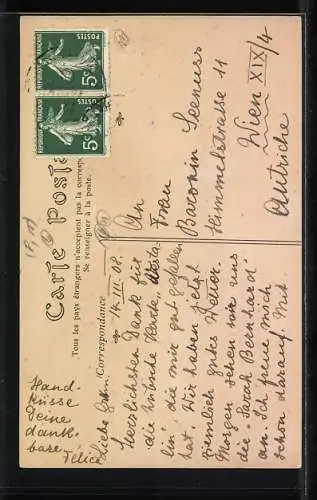 REPUBLIQUE FRANÇAISE
POSTES
5c
REPUBLIQUE FRANÇAISE
POSTES
5c
Carte Postale
Tous les pays étrangers n'acceptent pas la correspo
Se renseigner à la poste.
(Correspondance
14. III. 08.
Liebe
Herzlichsten Dank für
die hübsche Karte,
lin" die mir gut gefallen
hat. Wir haben jetzt
ziemlich gutes Wetter.
Morgen sehen wir uns
die Sarah Bernhardt
an. Ich freue mich
schon darauf. Mit
Hand-
küsse
Deine
dank-
bare
Félice
An
Frau
Baronin Seenuss
Himmelstrasse 11
Wien XIX/4
Autriche